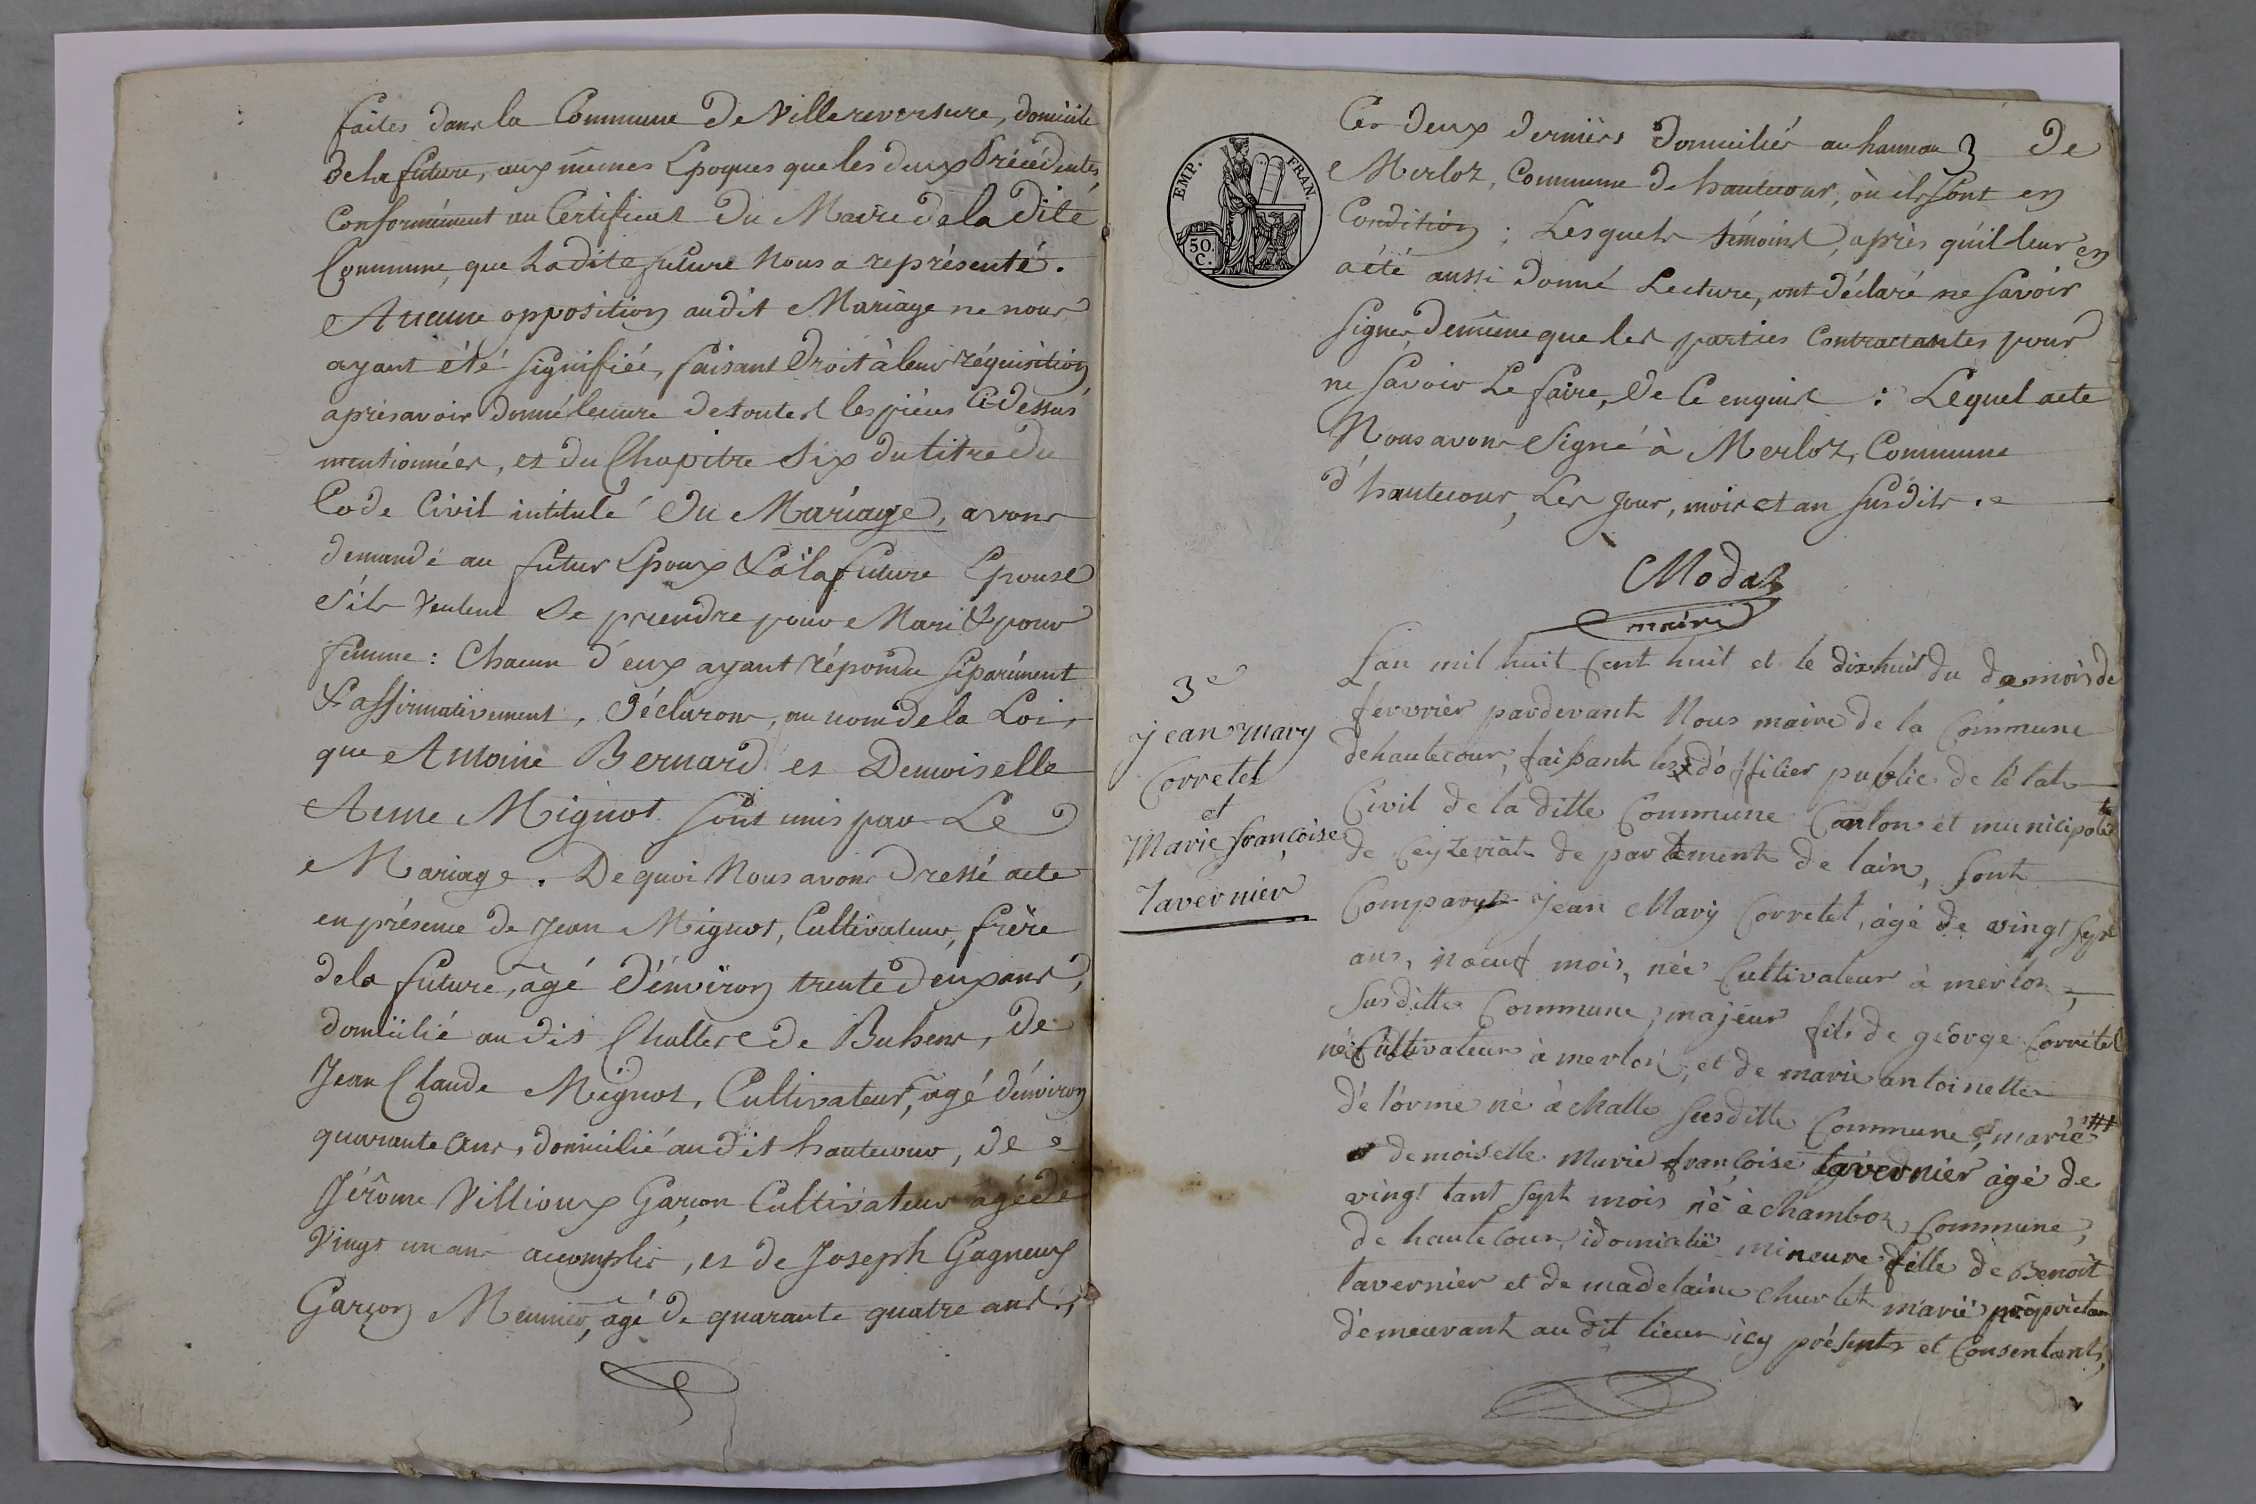 faites dans la Commune De Villereversure, domicile
de la future, aux mêmes Epoques que les deux Précédentes,
Conformément au Certificat Du Maire de la Dite
Commune, que Ladite future Nous a représenté.
Aucune opposition audit Mariage ne nous
ayant été signifiée, faisant Droit à leur réquisition
après avoir donné lecture de toutes les pièces Ci-dessus
mentionnées, et du Chapitre Six du titre du
Code Civil intitulé Du Mariage, avons
demandé au futur Epoux & à la future Epouse
s'ils veulent se prendre pour Mari & pour
femme : Chacun d'eux ayant répondu séparément
& affirmativement, déclarons, au nom de la Loi,
que Antoine Bernard et Demoiselle
Anne Mignot sont unis par Le
Mariage. De quoi Nous avons dressé acte
en présence de Jean Mignot, Cultivateur, frère
de la future, agé d'environ trente deux ans,
domicilié au dit Challes de Buhens, De
Jean Claude Mignot, Cultivateur, agé d'environ
quarante ans, domicilié au dit hautecour, de
Jérôme Villioux Garçon Cultivateur agé de
Vingt un ans accomplis, et de Joseph Gagneux
Garçon Meunier, agé de quarante quatre ans,
EMP. FRAN.
50. C.
Ces deux derniers Domiciliés au hameau 3 De
Merloz, Commune de hautecour, où ils sont en
Condition ; Lesquels témoins, après qu'il leur en
a été aussi donné Lecture, ont déclaré ne savoir
signer, de même que les parties Contractantes pour
ne savoir Le faire, de ce enquis : Lequel acte
Nous avons signé à Merloz, Commune
d'hautecour, Les jour, mois et an susdits.
Modas
maire
3e
jean mary
Corretel
et
Marie françoise
Tavernier
Lan mil huit Cent huit et le dixhuit du de mois de
fevvrier pardevant Nous maire de la Commune
dehautecour, faissant les dófficier publie de létat
Civil de la ditte Commune Canton et municipalité
de Ceyzeriat de partement de lain, sont
Comparut jean Mary Corretel, àgé de vingt sept
ans, nœuf mois, née Cultivateur à merlon,
Susditte Commune, majeur fils de géorge Corretel
né Cultivateur à merlon, et de marie antoinette
dé lórme né à challe susditte Commune, marié
et demoiselle Marie françoise tavernier àgé de
vingt tant sept mois né à chamboz, Commune,
de hautecour, idomicilie mineure fille de Benoit
tavernier et de madelaine churlet marié propriétaire
démeurant au dit lieux icy présents et Consentants,